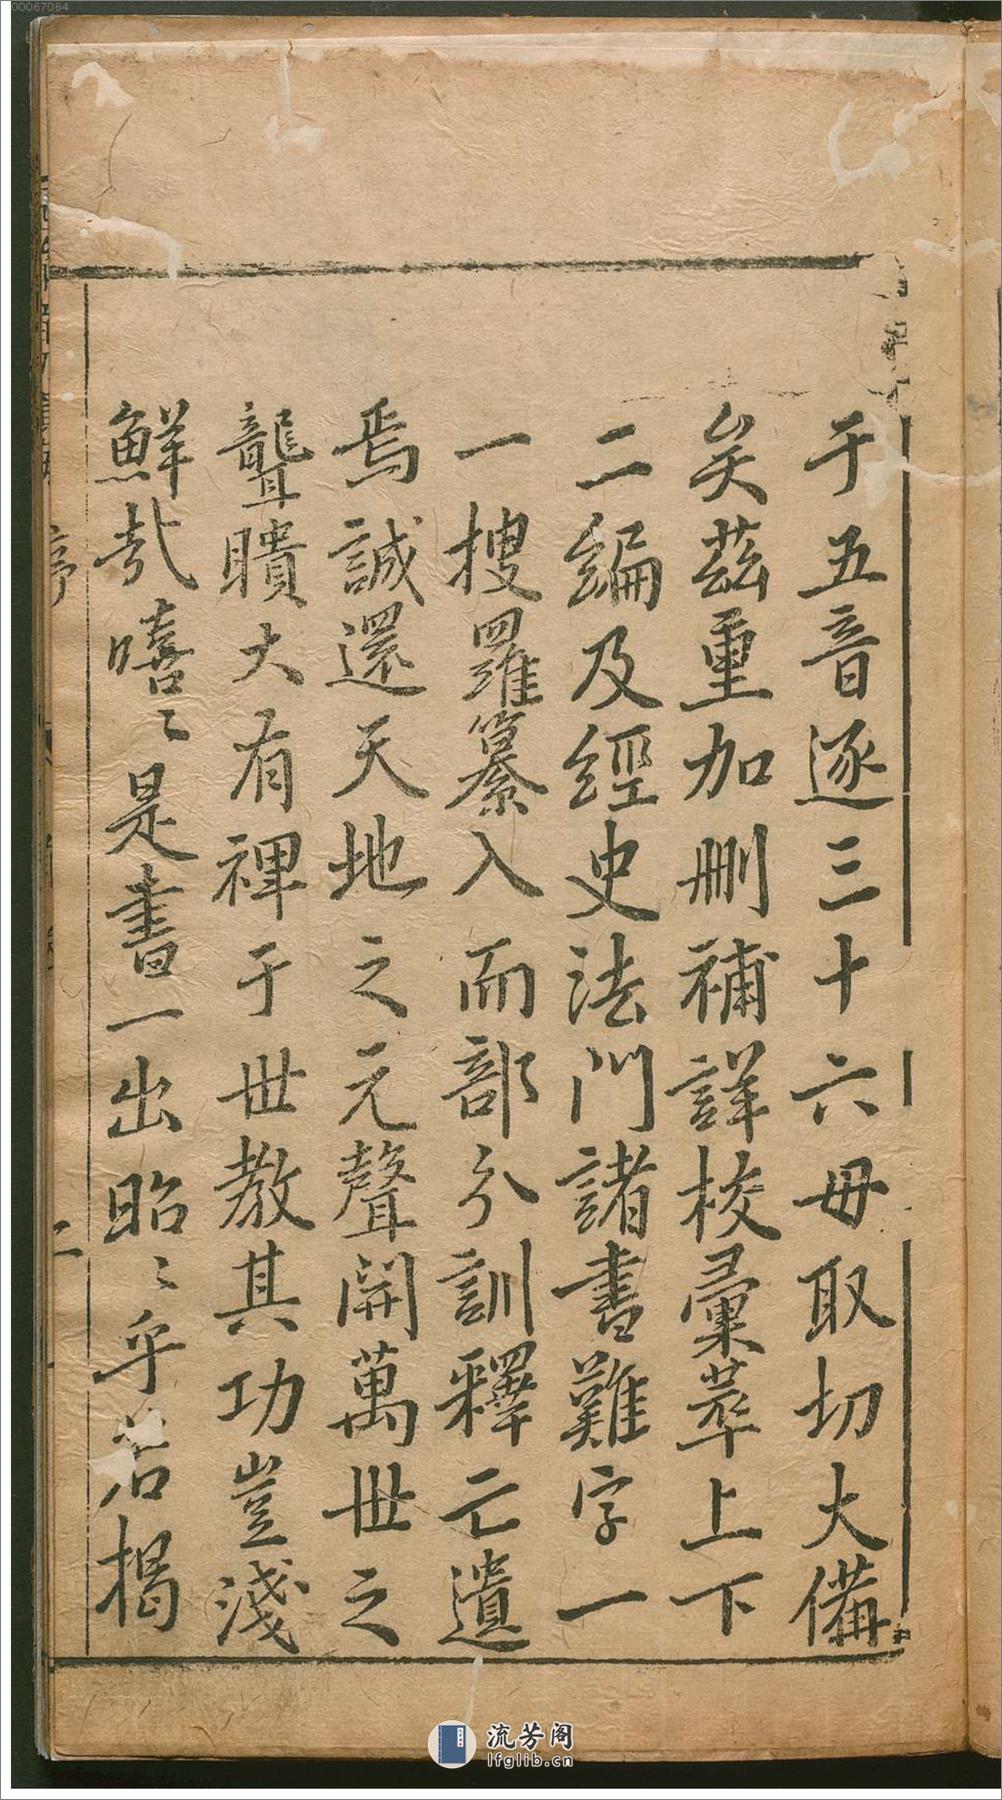 00067064
于五音逐三十六毋取切大備
矣茲重加刪補詳校彙萃上下
二編及經史法門諸書難字一
一搜羅纂入而部分訓釋亡遺
焉誠還天地之元聲開萬世之
聾聵大有裨于世教其功豈淺
鮮哉嘻〻是書一出昭〻乎若揭
序
二
流芳阁
lfglib.cn